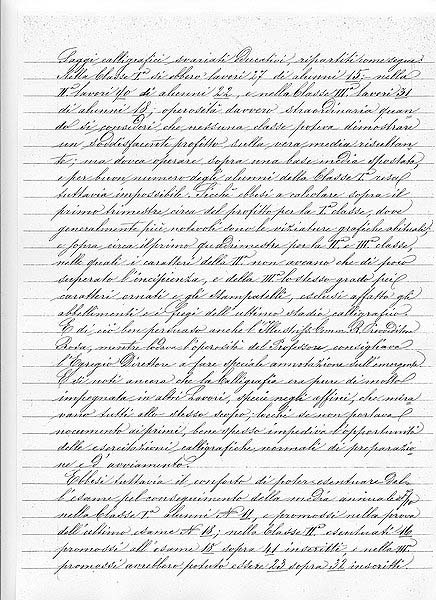 Saggi calligrafici svariati educativi, ripartiti come segue:
Nella Classe Iª si ebbero lavori 27 di alunni 15 - nella
IIª lavori 70 di alunni 22, e nella Classe IIIª lavori 31
di alunni 18; operosità davvero straordinaria quan
do si consideri, che nessuna classe poteva dimostrare
un soddisfacente profitto sulla vera media risultan
te; ma dovea operare sopra una base media spostata,
e per buon numero degli alunni della Classe Iª resa
tuttavia impossibile. Sicchè ebbesi a calcolare sopra il
primo trimestre circa del profitto per la Iª classe, dove
generalmente più notevoli sono le viziature grafiche abituali,
e sopra circa il primo quadrimestre per la IIª e IIIª classe,
nelle quali i caratteri della IIª non aveano che di poco
superato l'incipienza, e della IIIª lo stesso grado pei
caratteri ornati e gli stampatelli, esclusi affatto gli
abbellimenti e i fregi dell'ultimo stadio calligrafico
E di ciò ben persuaso anche l'Ill
Rosa, mentre lodava l'operosità del Professore, consigliava
l'Egregio Direttore a fare speciale annotazione sull'emergenza.
E si noti ancora che la Calligrafia era pure di molto
impegnata in altri Lavori, specie negli affini, che mira
vano tutti allo stesso scopo; locchè se non portava
nocumento ai primi, bene spesso impediva l'opportunità
delle esercitazioni calligrafiche normali di preparazio
ne e d'avviamento.
Ebbesi tuttavia il conforto di poter esentuare dal
l'esame pel conseguimento della media annua
nella Classe Iª alunni Nº 11, e promossi nella prova
dell'ultimo esame Nº 18; nella Classe IIª esentuati 16
promossi all'esame 15 sopra 41 inscritti, e nella IIIª
promossi avrebbero potuto essere 23 sopra 32 inscritti